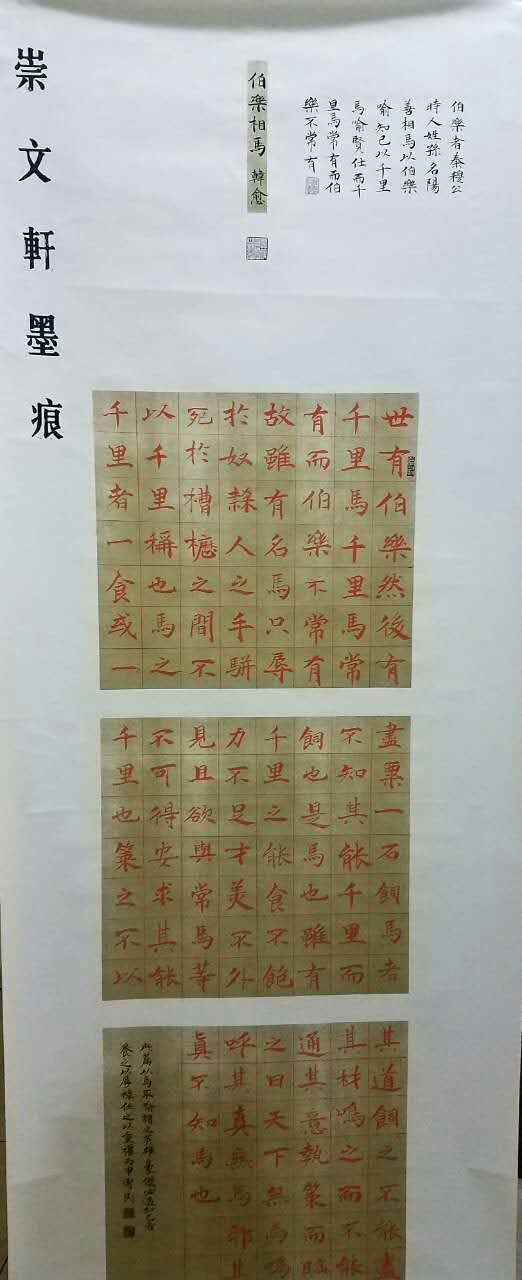 伯樂者秦穆公
時人姓孫名陽
善相馬以伯樂
喻知己以千里
馬喻賢仕而千
里馬常有而伯
樂不常有
伯樂相馬 韓愈
崇文軒墨痕
世有伯樂然後有
千里馬千里馬常
有而伯樂不常有
故雖有名馬只辱
於奴隸人之手駢
死於槽櫪之間不
以千里稱也馬之
千里者一食或一
盡粟一石飼馬者
不知其能千里而
飼也是馬也雖有
千里之能食不飽
力不足才美不外
見且欲與常馬等
不可得安求其能
千里也策之不以
其道飼之不能盡
其材鳴之而不能
通其意執策而臨
之曰天下無馬嗚
呼其真無馬邪其
眞不知馬也
此篇以馬取喻謂之英雄豪傑必遇知己者
養之以厚祿任之以重權丙申